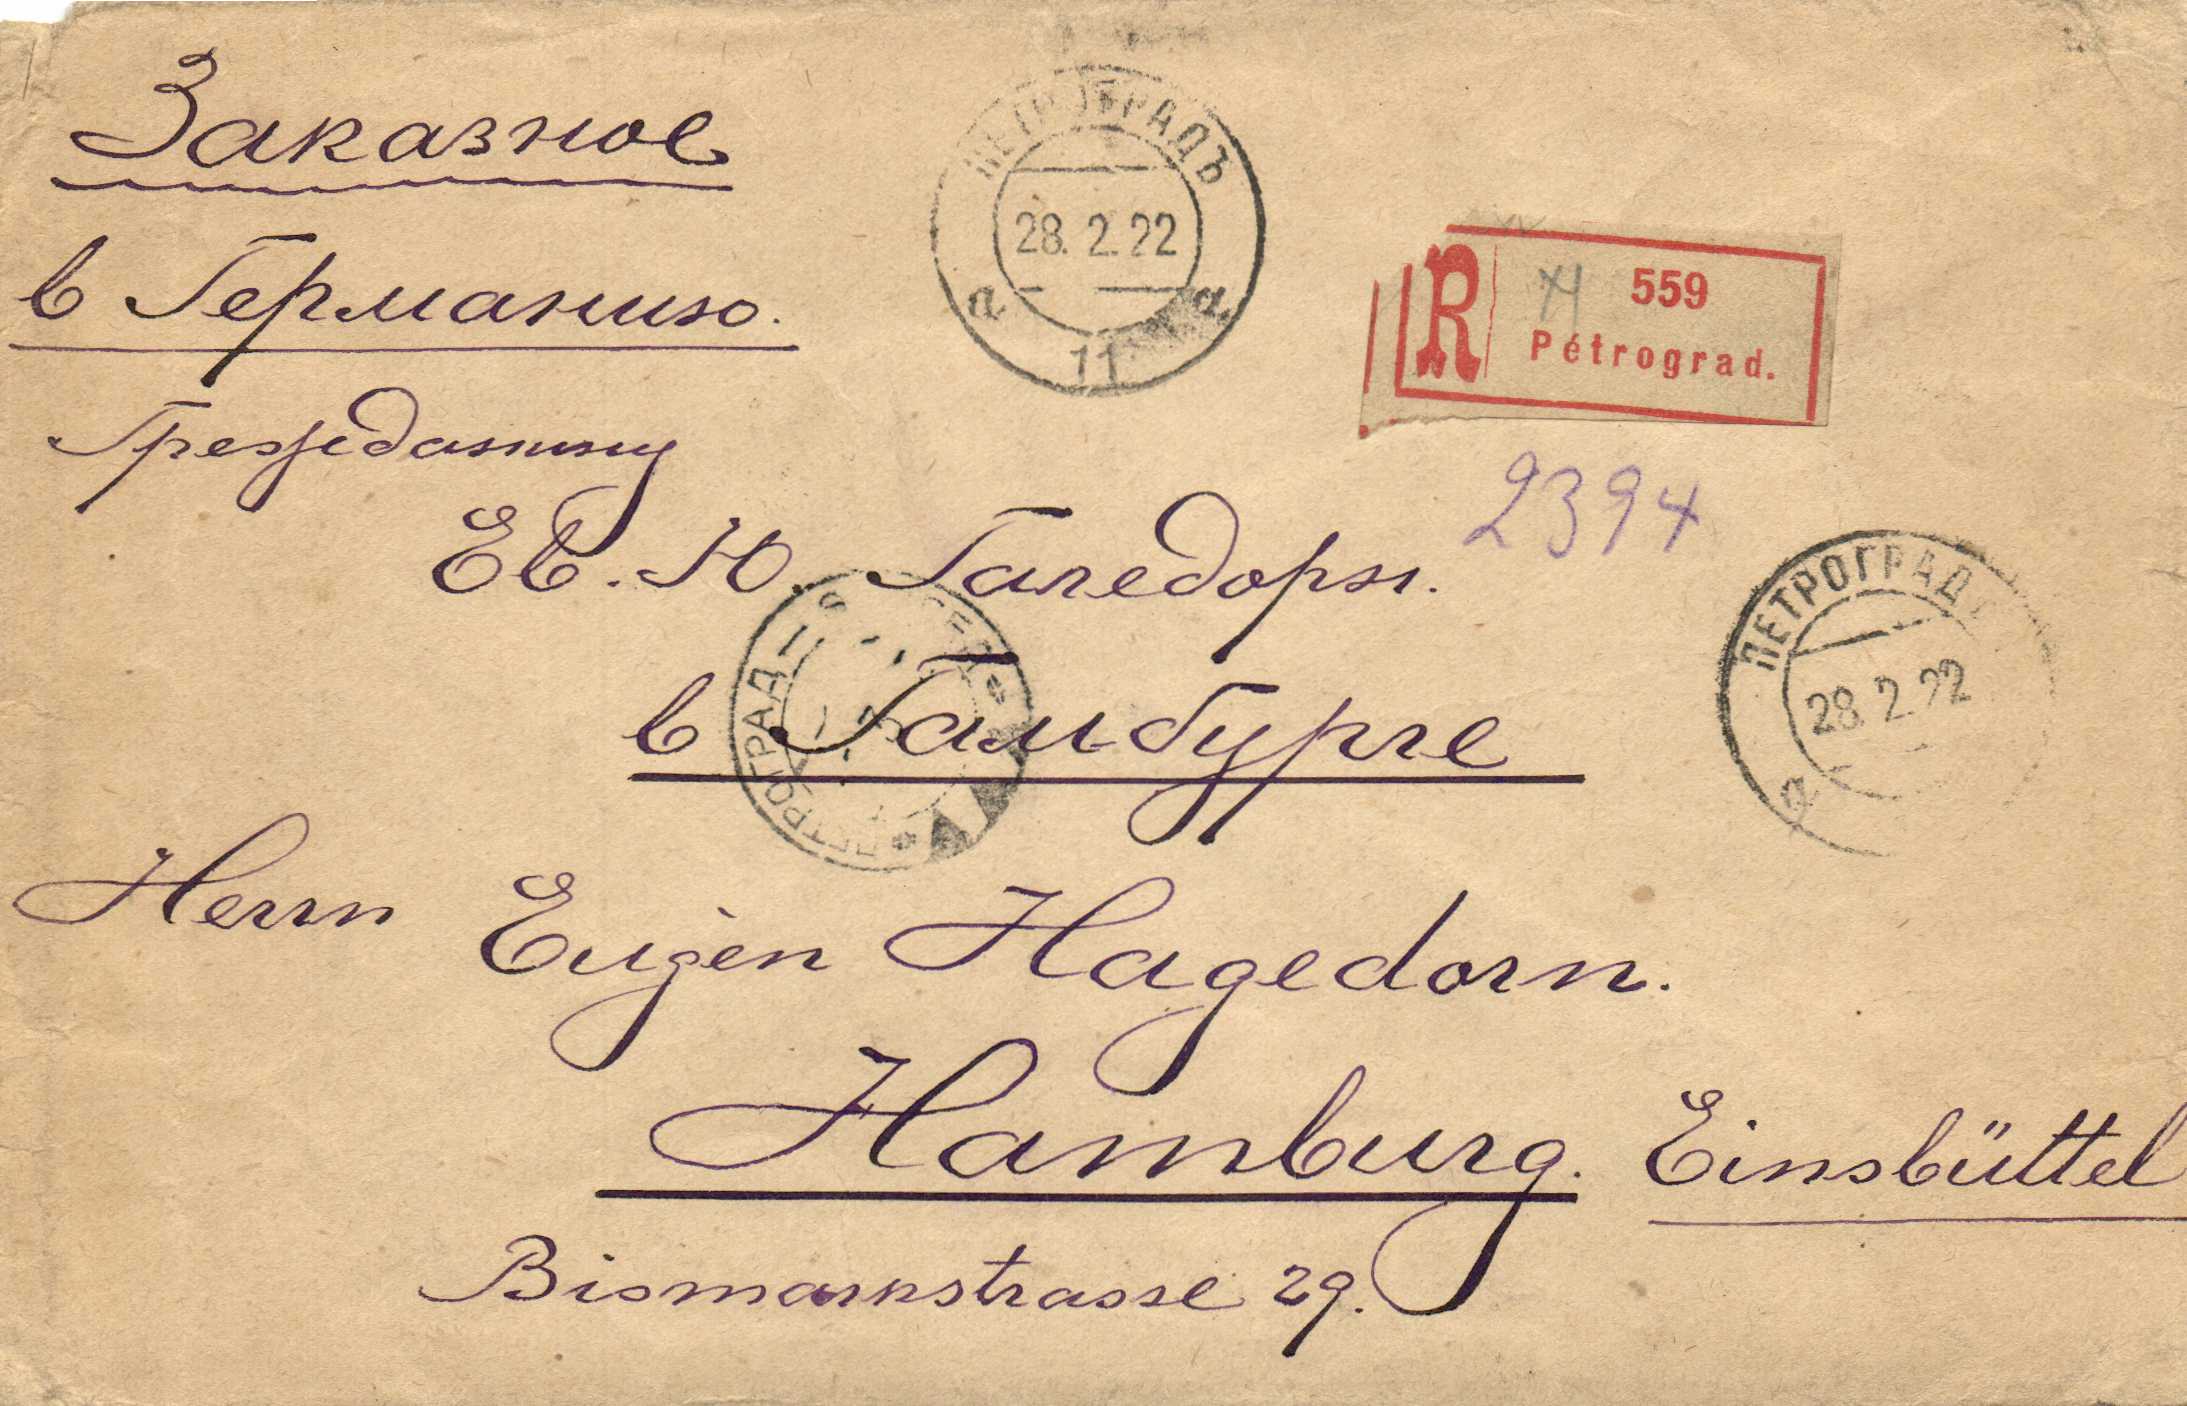 Заказное
ПЕТРОГРАДЪ
28. 2. 22
а а
11
в Германию.
R 559
Pétrograd.
Гражданину
2394
Ев. Ю. Гагедорн.
ПЕТРОГРАД
28. 2. 22
а
ПЕТРОГРАД
в Гамбурге
Herrn Eugen Hagedorn.
Hamburg. Einsbüttel
Bismarkstrasse 29.